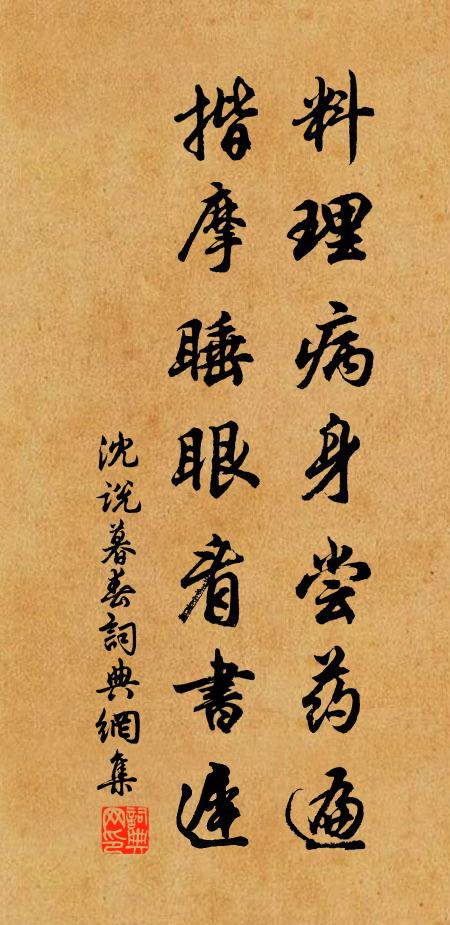 料理病身尝药遍
揩摩睡眼看书迟
沈说暮春词典網集
詞典网印